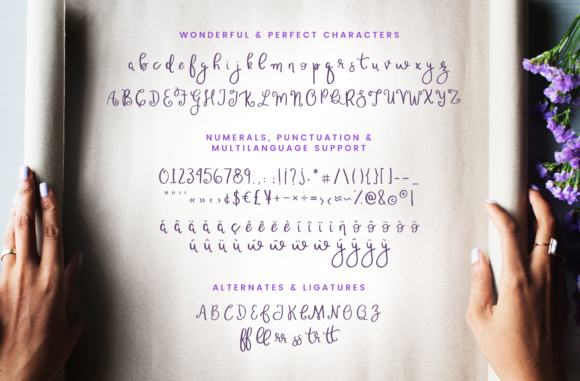 WONDERFUL & PERFECT CHARACTERS
a b c d e f g h i j k l m n o p q r s t u v w x y z
A B C D E F G H I J K L M N O P Q R S T U V W X Y Z
NUMERALS, PUNCTUATION &
MULTILANGUAGE SUPPORT
0123456789.,:;!|?¿.*#/\(){}[]--_
""''«»‹›¢$€£¥+−×÷=><≈~⁒@&©®|
á â ä à å ç é ê ë è í î ï ì ñ ó ô ö ò õ
ú û ü ù ẃ ŵ ẅ ẁ ý ŷ ÿ ỳ
ALTERNATES & LIGATURES
A B C D E G J K L M N O Q Z
ff ll rr ss tr tt